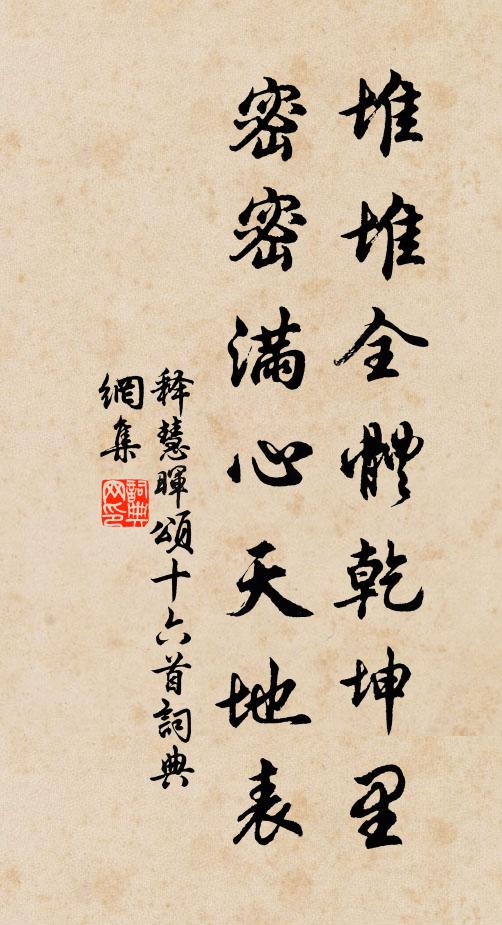 堆堆全體乾坤里
密密滿心天地表
釋慧暉頌十六首詞典
網集
詞典
网印